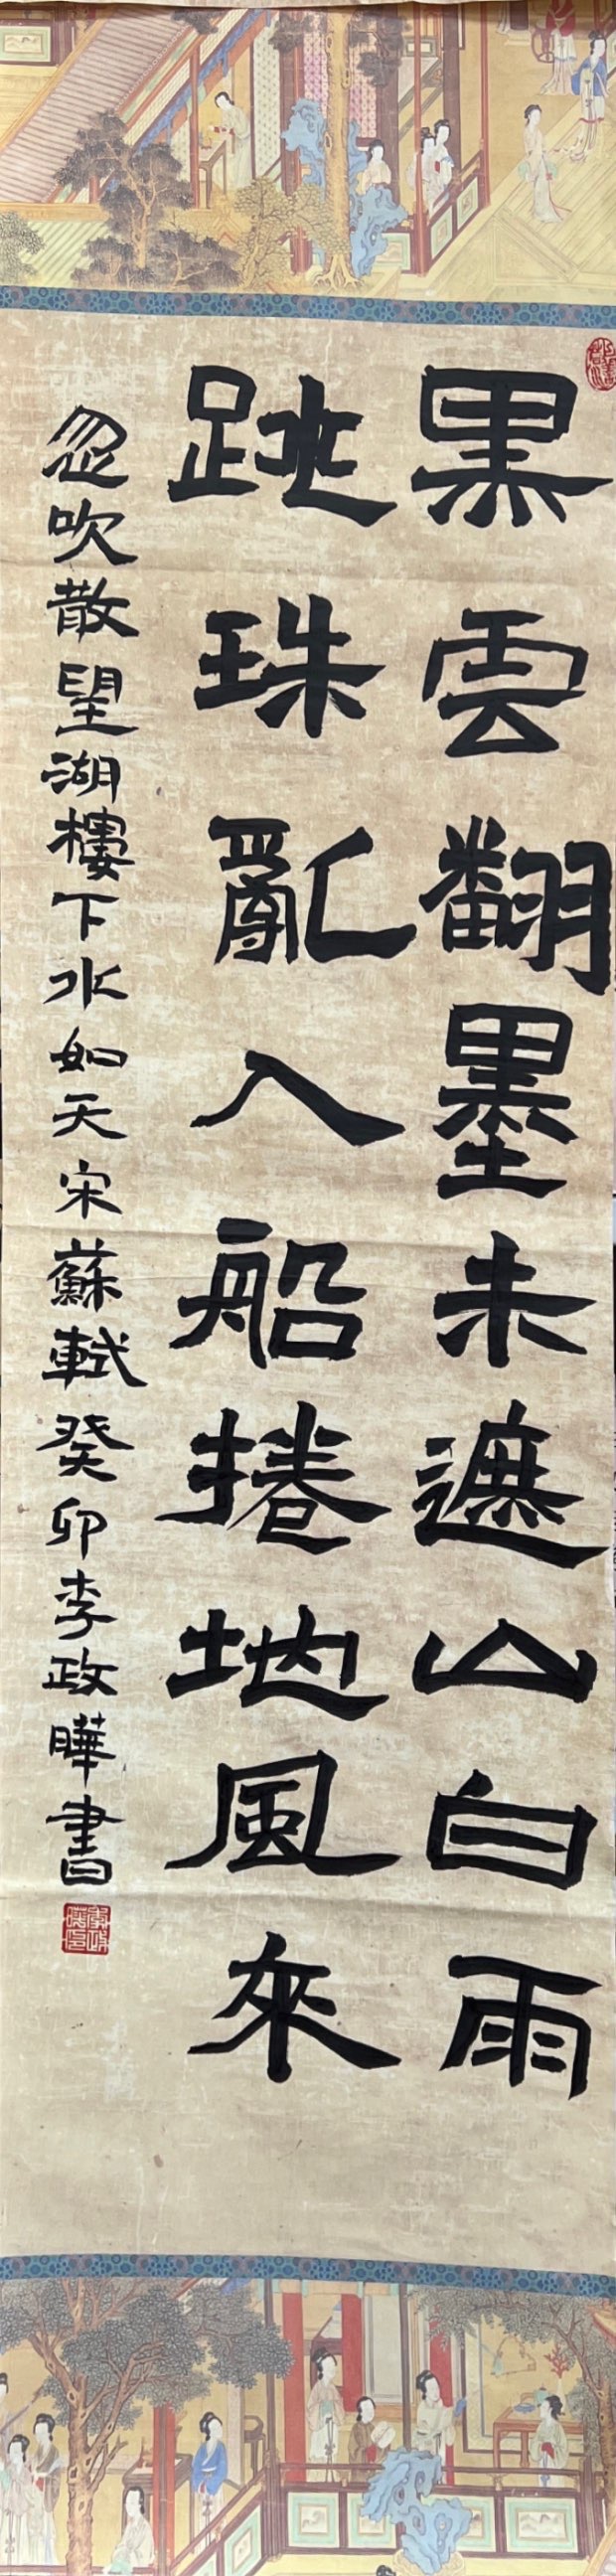 黑雲翻墨未遮山白雨
跳珠亂入船捲地風來
忽吹散望湖樓下水如天宋蘇軾癸卯李政曄書